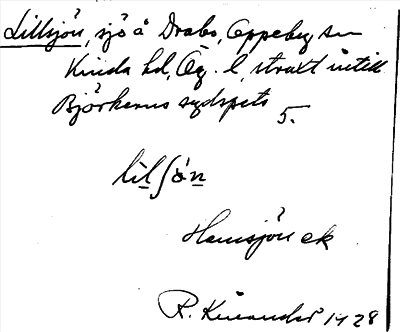 Lillsjön, sjö å Drabo, Oppeby sn
Kinda hd, Ög. l, straxt intill
Björkerns sydspets 5.
lìlʃö́n
Hemsjön ek
R. Kinander 1928